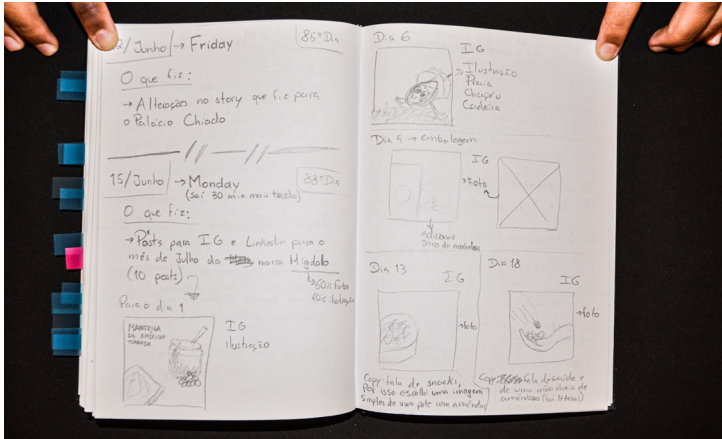 12/ Junho → Friday
85º Dia
O que fiz:
→ Alteração no story que fiz para
o Palácio Chiado
15/ Junho → Monday
88º Dia
(Saí 30 min mais tarde)
O que fiz:
→ Posts para IG e Linkedin para o
mês de Julho da marca Migdalo
(10 posts)
↳ 60% foto
40% ilustração
Para o dia 1
MANTEIGA
DE AMÊNDOA
TORRADA
IG
ilustração
Dia 6
IG
→ Ilustração
Praia
Chapéu
Cadeira
Dia 9 → embalagem
IG
→ Foto
adicionar
saco de amêndoa
Dia 13
IG
→ foto
Copy fala de snacks,
por isso escolhi uma imagem
simples de um pote com amêndoas
Dia 18
IG
→ foto
Copy: fala da saúde e
de uma mão cheia de
amêndoas (fui literal)